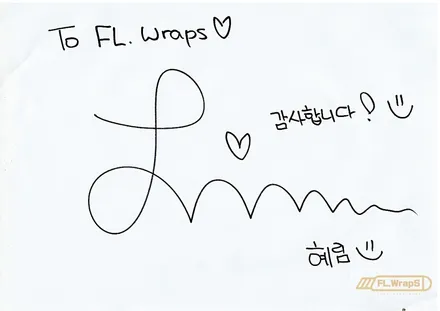 To FL. Wraps♡
감사합니다! :)
혜림 :)
FL.WrapS